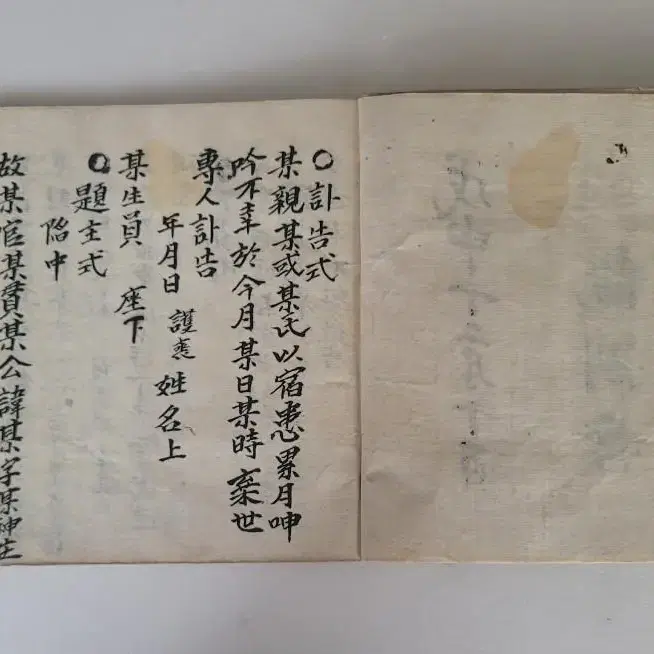 ○訃告式
某親某或某氏以宿患累月呻
吟不幸於今月某日某時棄世
專人訃告
年月日 護喪 姓名上
某生員 座下
○題主式
陷中
故某官某貫某公諱某字某神主